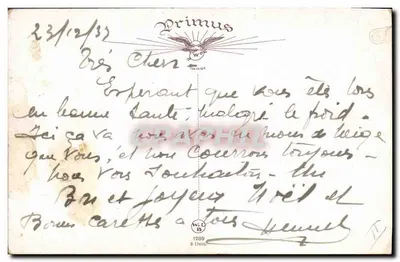 Primus
23/12/37
Très Chers -
Esperant que vous êtes tous
en bonne santé malgré le froid.
Ici ça va nous de neige
que vous, et nous courrons toujours -
nous vous souhaitons Un
Bon et Joyeux Noël et
Bonnes caresses a Tous